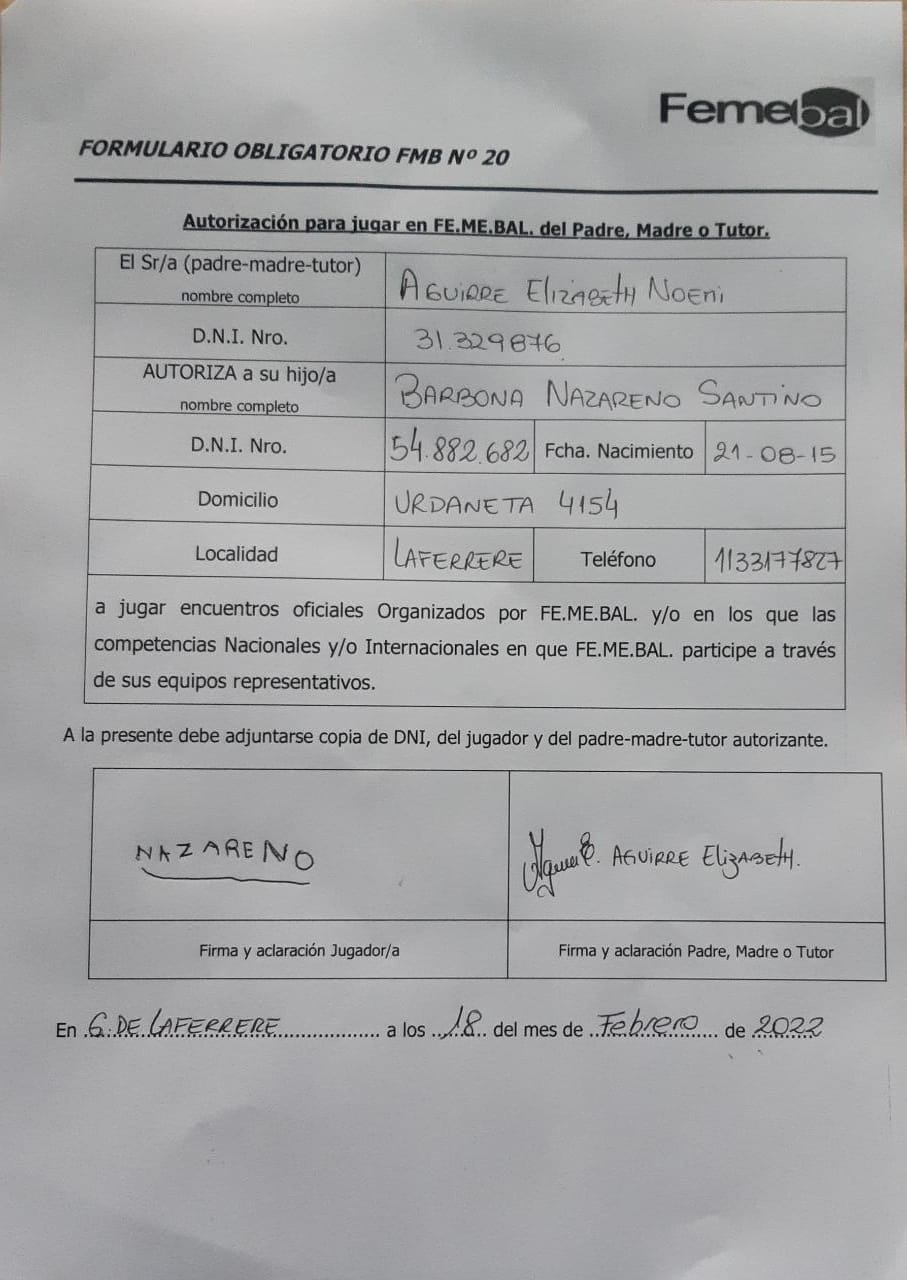 Femebal
FORMULARIO OBLIGATORIO FMB Nº 20
Autorización para jugar en FE.ME.BAL. del Padre, Madre o Tutor.
El Sr/a (padre-madre-tutor)
nombre completo
AGUIRRE ElizABEtH NOEMi
D.N.I. Nro.
31.329876
AUTORIZA a su hijo/a
nombre completo
BARBONA NAZARENO SANTINO
D.N.I. Nro.
54.882.682
Fcha. Nacimiento
21-08-15
Domicilio
URDANETA 4154
Localidad
LAFERRERE
Teléfono
1133177827
a jugar encuentros oficiales Organizados por FE.ME.BAL. y/o en los que las
competencias Nacionales y/o Internacionales en que FE.ME.BAL. participe a través
de sus equipos representativos.
A la presente debe adjuntarse copia de DNI, del jugador y del padre-madre-tutor autorizante.
NAZARENO
AGUIRRE ElizABEtH.
Firma y aclaración Jugador/a
Firma y aclaración Padre, Madre o Tutor
En G. DE LAFERRERE a los 18 del mes de Febrero de 2022